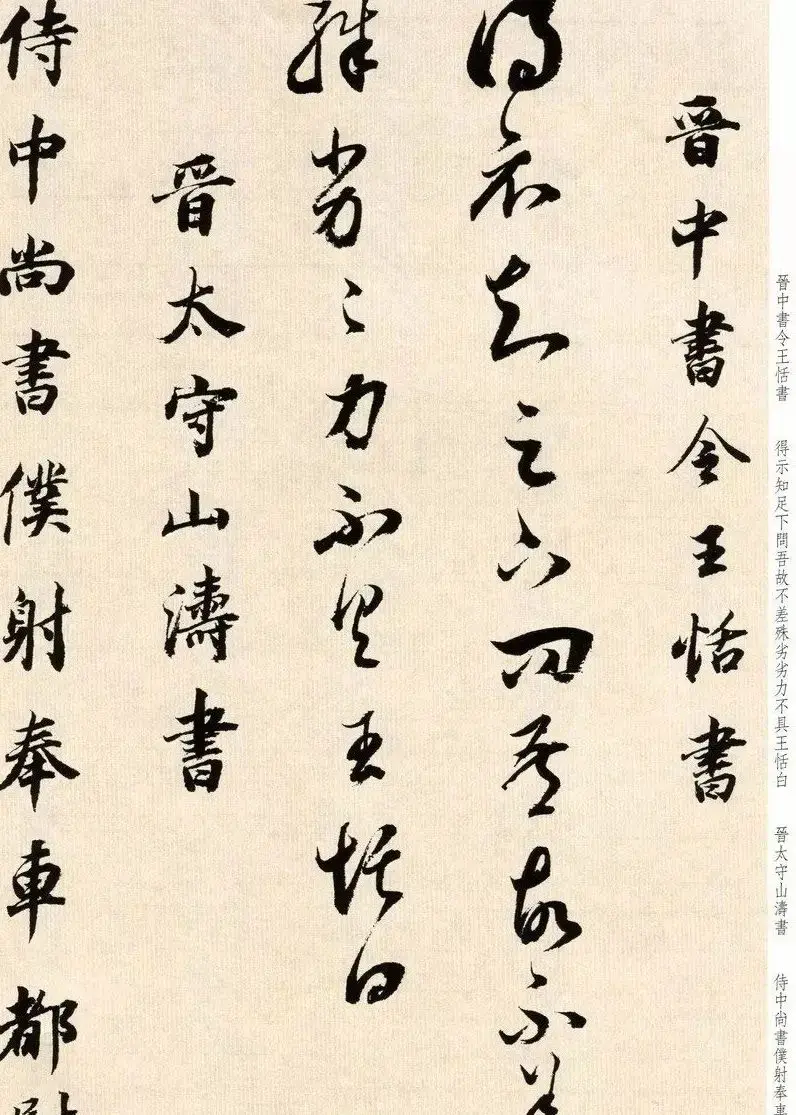 晉中書令王恬書
得示知足下問吾故不差
殊劣劣力不具王恬白
晉太守山濤書
侍中尚書僕射奉車都
晉中書令王恬書 得示知足下問吾故不差殊劣劣力不具王恬白 晉太守山濤書 侍中尚書僕射奉車